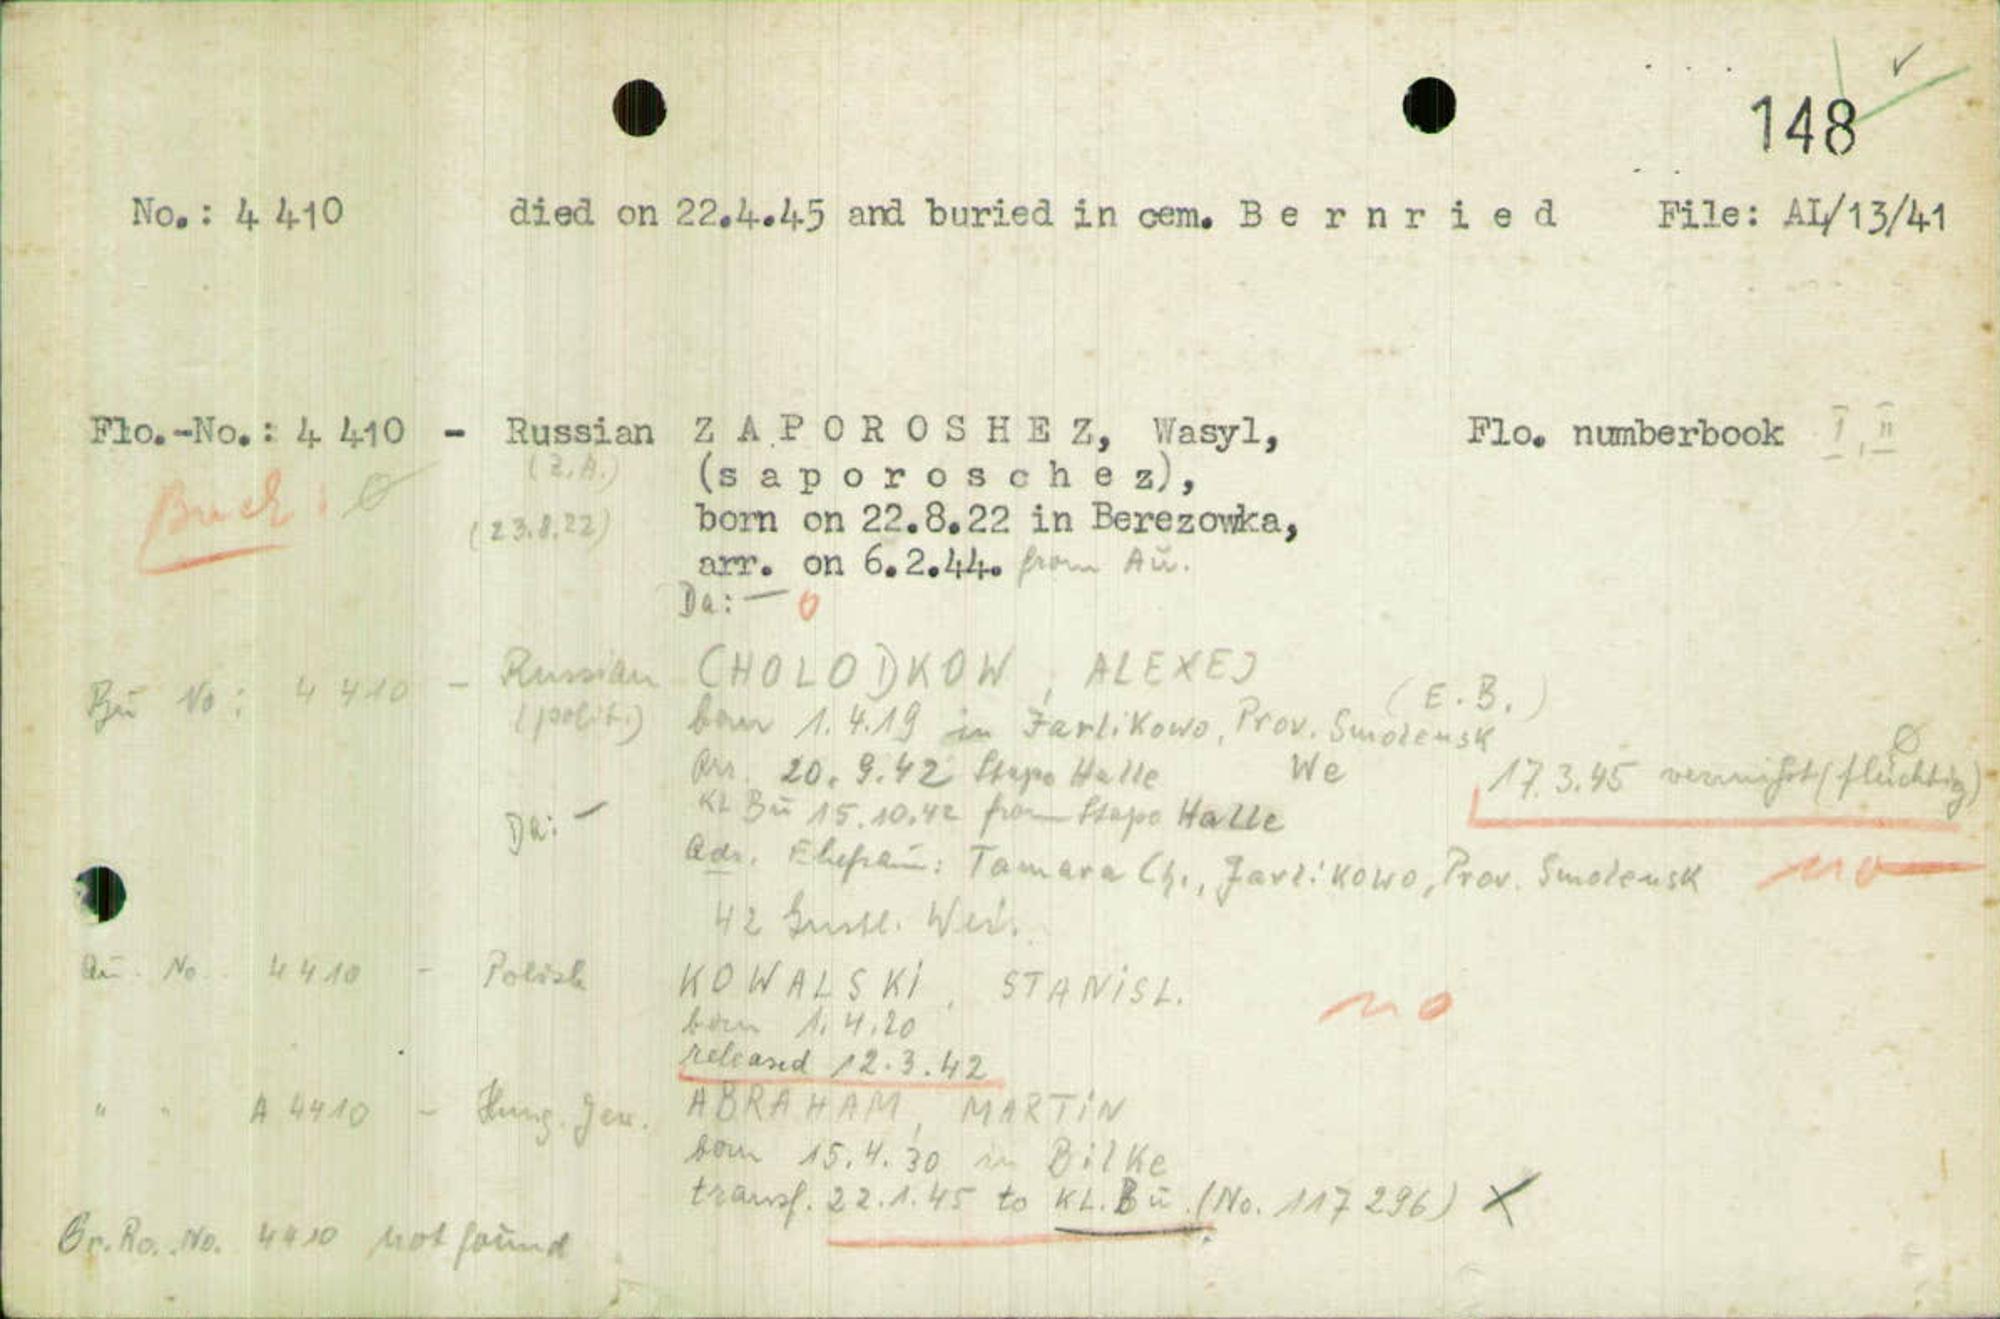 148
No.: 4 410 died on 22.4.45 and buried in cem. B e r n r i e d File: AL/13/41
Flo.-No.: 4 410 - Russian Z A P O R O S H E Z, Wasyl, Flo. numberbook I, II
(Z.A.) (s a p o r o s c h e z),
Buch: ø
(23.8.22) born on 22.8.22 in Berezowka,
arr. on 6.2.44. from Au.
Da: — 0
Bu No: 4 410 - Russian CHOLODKOW, ALEXEJ
(E.B.)
(polit.) born 1.4.19 in Jarlikowo, Prov. Smolensk
Arr. 20.9.42 Stapo Halle We 17.3.45 vermißt (flüchtig) ø
Da: — KL Bu 15.10.42 from Stapo Halle
Adr. Ehefrau: Tamara Ch., Jarlikowo, Prov. Smolensk no
42 Gustl. Wei.
Au. No. 4410 - Polish KOWALSKI, STANISL. no
born 1.4.20
released 12.3.42
" " A 4410 - Hung. Jew. ABRAHAM, MARTIN
born 15.4.30 in Bilke
transf. 22.1.45 to KL. Bu. (No. 117 296) X
Gr. Ro. No. 4410 not found